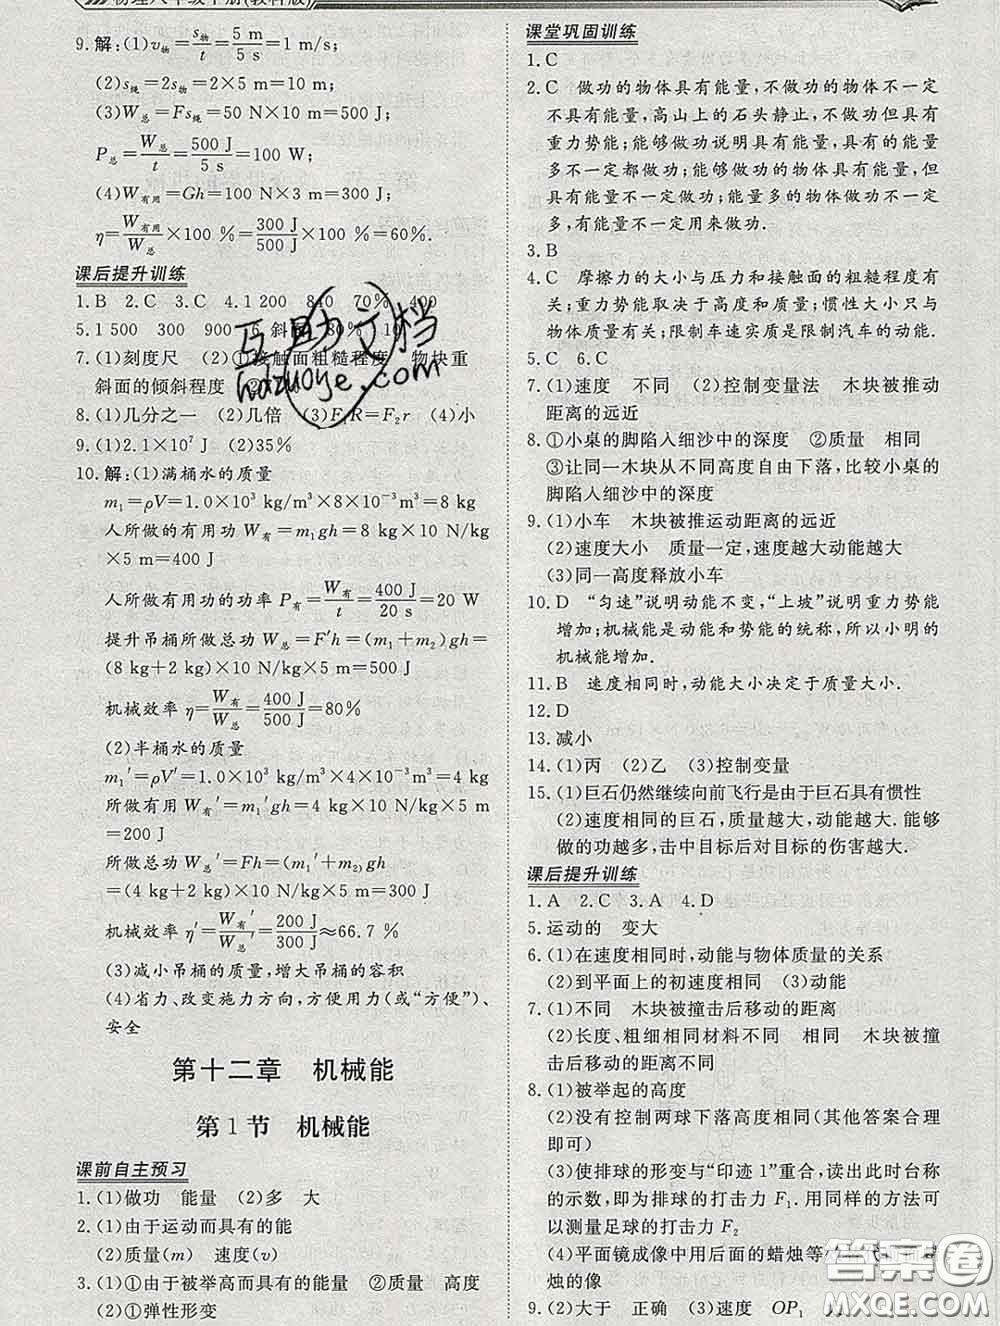 物理八年级下册(教科版)
9.解:(1)v物=s物/t=5 m/5 s=1 m/s;
(2)s绳=2s物=2×5 m=10 m;
(3)W总=Fs绳=50 N×10 m=500 J;
P总=W总/t=500 J/5 s=100 W;
(4)W有用=Gh=100 N×3 m=300 J;
η=W有用/W总×100 %=300 J/500 J×100 %=60%.
课后提升训练
1.B 2.C 3.C 4.1 200 840 70% 400
5.1 500 300 900 6.斜面 80% 10
7.(1)刻度尺 (2)①接触面粗糙程度 物块重
斜面的倾斜程度
8.(1)几分之一 (2)几倍 (3)F₁R=F₂r (4)小
9.(1)2.1×10⁷ J (2)35%
10.解:(1)满桶水的质量
m₁=ρV=1.0×10³ kg/m³×8×10⁻³m³=8 kg
人所做的有用功W有=m₁gh=8 kg×10 N/kg
×5 m=400 J
人所做有用功的功率P有=W有/t=400 J/20 s=20 W
提升吊桶所做总功W总=F′h=(m₁+m₂)gh=
(8 kg+2 kg)×10 N/kg×5 m=500 J
机械效率η=W有/W总=400 J/500 J=80%
(2)半桶水的质量
m₁′=ρV′=1.0×10³ kg/m³×4×10⁻³m³=4 kg
所做有用功W有′=m₁′gh=4 kg×10 N/kg×5 m
=200 J
所做总功W总′=Fh=(m₁′+m₂)gh
=(4 kg+2 kg)×10 N/kg×5 m=300 J
机械效率η′=W有′/W总′=200 J/300 J≈66.7 %
(3)减小吊桶的质量,增大吊桶的容积
(4)省力、改变施力方向,方便用力(或“方便”)、
安全
第十二章 机械能
第1节 机械能
课前自主预习
1.(1)做功 能量 (2)多 大
2.(1)由于运动而具有的能
(2)质量(m) 速度(v)
3.(1)①由于被举高而具有的能量 ②质量 高度
(2)①弹性形变
课堂巩固训练
1.C
2.C 做功的物体具有能量,不做功的物体不一定
不具有能量,高山上的石头静止,不做功但具有
重力势能;能够做功说明具有能量,具有的能量
多不一定都做功;能够做功的物体一定具有能
量,具有能量的物体不一定做功;能量多的物体不一定做功
多,有能量不一定用来做功.
3.B
4.C 摩擦力的大小与压力和接触面的粗糙程度有
关;重力势能取决于高度和质量;惯性大小只与
物体质量有关;限制车速实质是限制汽车的动能.
5.C 6.C
7.(1)速度 不同 (2)控制变量法 木块被推动
距离的远近
8.①小桌的脚陷入细沙中的深度 ②质量 相同
③让同一木块从不同高度自由下落,比较小桌的
脚陷入细沙中的深度
9.(1)小车 木块被推运动距离的远近
(2)速度大小 质量一定,速度越大动能越大
(3)同一高度释放小车
10.D “匀速”说明动能不变,“上坡”说明重力势能
增加;机械能是动能和势能的统称,所以小明的
机械能增加.
11.B 速度相同时,动能大小决定于质量大小.
12.D
13.减小
14.(1)丙 (2)乙 (3)控制变量
15.(1)巨石仍然继续向前飞行是由于巨石具有惯性
(2)速度相同的巨石,质量越大,动能越大.能够
做的功越多,击中目标后对目标的伤害越大.
课后提升训练
1.A 2.C 3.A 4.D
5.运动的 变大
6.(1)在速度相同时,动能与物体质量的关系
(2)到平面上的初速度相同 (3)动能
7.(1)不同 木块被撞击后移动的距离
(2)长度、粗细相同材料不同 相同 木块被撞
击后移动的距离不同
8.(1)被举起的高度
(2)没有控制两球下落高度相同(其他答案合理
即可)
(3)使排球的形变与“印迹1”重合,读出此时台称
的示数,即为排球的打击力F₁.用同样的方法可
以测量足球的打击力F₂
(4)平面镜成像中用后面的蜡烛等
烛的像
9.(2)大于 正确 (3)速度 OP₁
互助文档
hdzuoye.com
答案圈
MXQE.COM